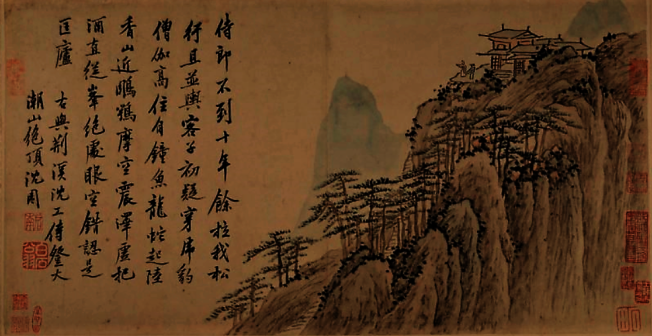 侍郎不到十年餘拉我松
行且並輿客子初疑穿虎豹
僧伽高住有鐘魚龍蛇起陸
香山近鵰鶚摩空震澤虛把
酒直從峯絕處眼空錯認是
匡廬 右與荊溪沈工侍登大
潮山絕頂沈周